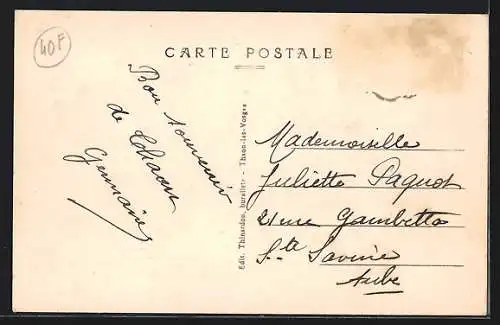 40F
CARTE POSTALE
Bon souvenir
de Thaon
Germaine
Edit. Thinardon, buraliste - Thaon-les-Vosges
Mademoiselle
Juliette Paquot
21 rue Gambetta
Ste Savine
Aube